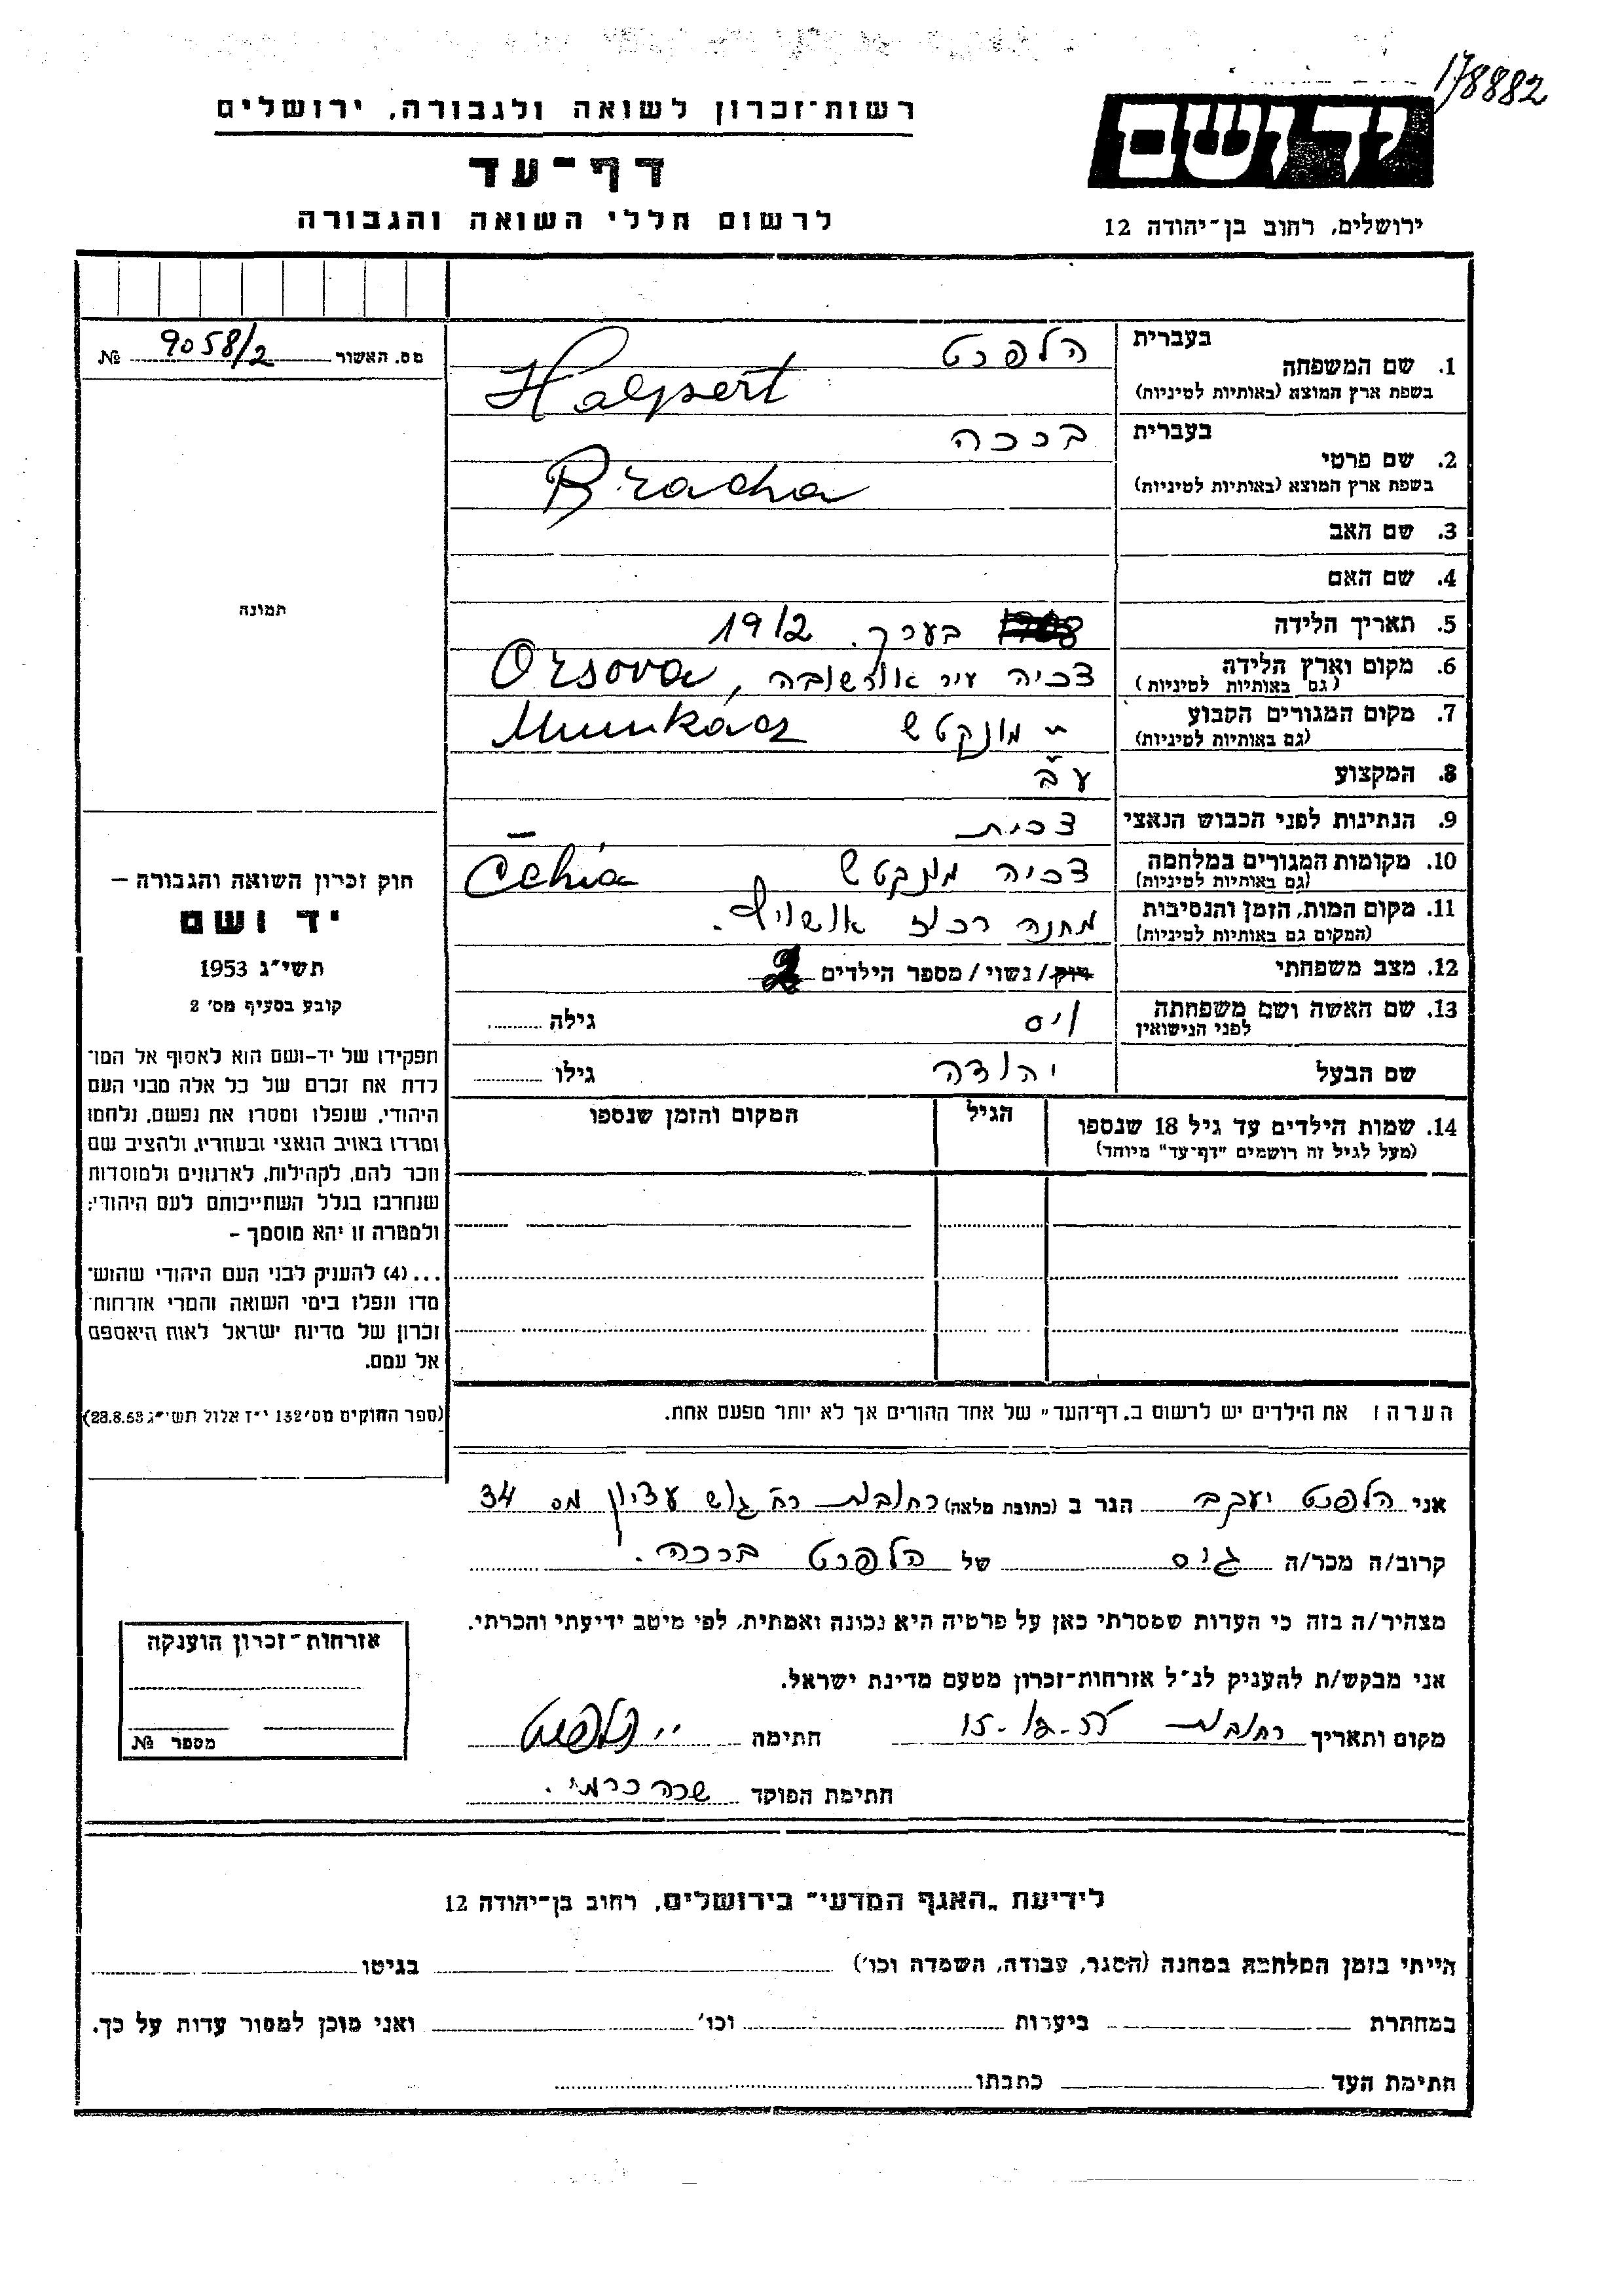 178882
יד ושם
ירושלים, רחוב בן־יהודה 12
רשות־זכרון לשואה ולגבורה, ירושלים
דף־עד
לרשום חללי השואה והגבורה
מס. האשור 9058/2 №
תמונה
חוק זכרון השואה והגבורה –
יד ושם
תשי"ג 1953
קובע בסעיף מס' 2
תפקידו של יד-ושם הוא לאסוף אל המו־
לדת את זכרם של כל אלה מבני העם
היהודי, שנפלו ומסרו את נפשם, נלחמו
ומרדו באויב הנאצי ובעוזריו, ולהציב שם
וזכר להם, לקהילות, לארגונים ולמוסדות
שנחרבו בגלל השתייכותם לעם היהודי;
ולמטרה זו יהא מוסמך –
...(4) להעניק לבני העם היהודי שהוש־
מדו ונפלו בימי השואה והמרי אזרחות־
זכרון של מדינת ישראל לאות היאספם
אל עמם.
(ספר החוקים מס' 132 י"ז אלול תשי"ג 28.8.53)
1. שם המשפחה
בעברית הלפרט
בשפת ארץ המוצא (באותיות לטיניות) Halpert
2. שם פרטי
בעברית ברכה
בשפת ארץ המוצא (באותיות לטיניות) Bracha
3. שם האב
4. שם האם
5. תאריך הלידה בערך. 1912
6. מקום וארץ הלידה צכיה עיר אורשובה, Orsova
(גם באותיות לטיניות)
7. מקום המגורים הקבוע " מונקטש Munkács
(גם באותיות לטיניות)
8. המקצוע עב
9. הנתינות לפני הכבוש הנאצי צכית –
10. מקומות המגורים במלחמה צכיה מונקטש Čehia
(גם באותיות לטיניות)
11. מקום המות, הזמן והנסיבות מחנה רכוז אושויץ.
(המקום גם באותיות לטיניות)
12. מצב משפחתי רוק/נשוי/מספר הילדים 2
13. שם האשה ושם משפחתה ויס גילה
לפני הנישואין
שם הבעל יהודה גילו
14. שמות הילדים עד גיל 18 שנספו הגיל המקום והזמן שנספו
(מעל לגיל זה רושמים "דף־עד" מיוחד)
הערה: את הילדים יש לרשום ב„דף־העד" של אחד ההורים אך לא יותר מפעם אחת.
אני הלפרט יעקב הגר ב (כתובת מלאה) רחובות רח גוש עציון מס 34
קרוב/ה מכר/ה גיס של הלפרט ברכה.
מצהיר/ה בזה כי העדות שמסרתי כאן על פרטיה היא נכונה ואמתית, לפי מיטב ידיעתי והכרתי.
אני מבקש/ת להעניק לנ"ל אזרחות־זכרון מטעם מדינת ישראל.
מקום ותאריך רחובות חתימה י. הלפרט
חתימת הפוקד שרה כרמי.
אזרחות־זכרון הוענקה
מספר №
לידיעת „האגף המדעי" בירושלים, רחוב בן־יהודה 12
הייתי בזמן המלחמה במחנה (הסגר, עבודה, השמדה וכו') בגיטו
במחתרת ביערות וכו' ואני מוכן למסור עדות על כך.
חתימת העד כתבתו